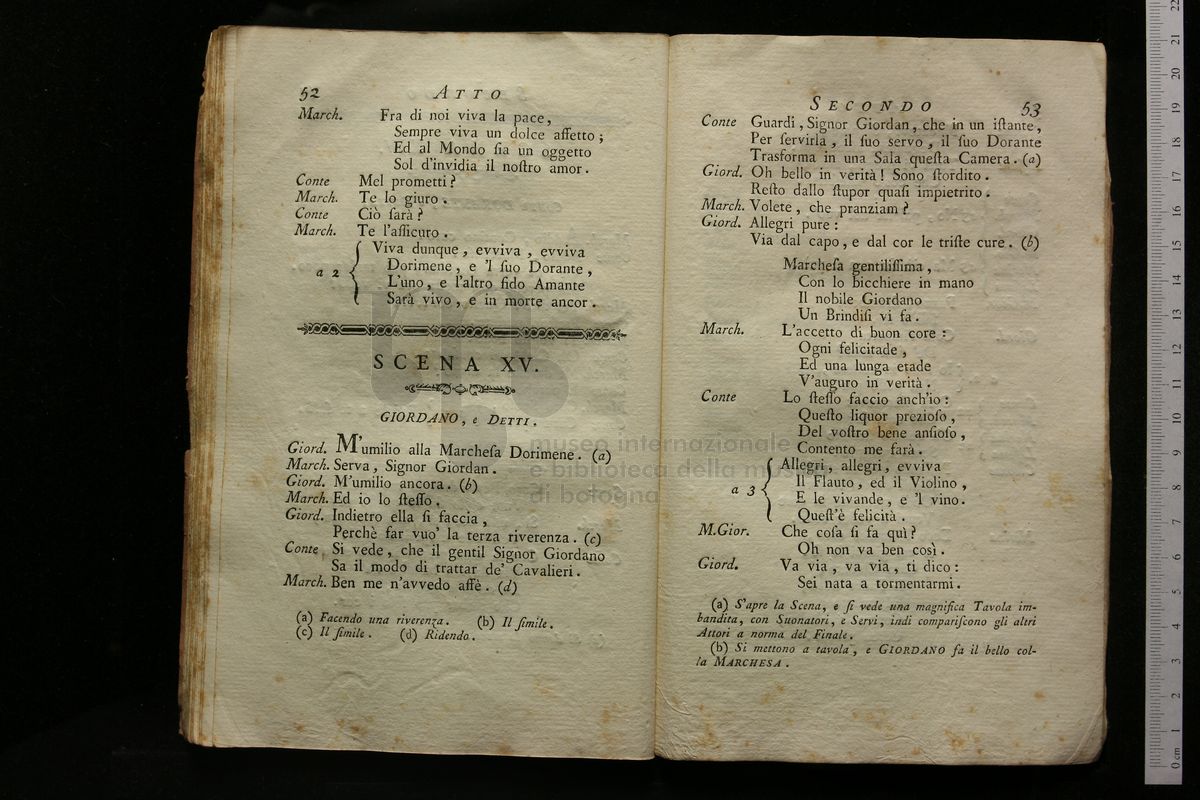 52 ATTO
March. Fra di noi viva la pace,
Sempre viva un dolce affetto;
Ed al Mondo ſia un oggetto
Sol d'invidia il noſtro amor.
Conte Mel prometti?
March. Te lo giuro.
Conte Ciò ſarà?
March. Te l'aſſicuro.
Viva dunque, evviva, evviva
Dorimene, e 'l ſuo Dorante,
a 2 L'uno, e l'altro fido Amante
Sarà vivo, e in morte ancor.
SCENA XV.
GIORDANO, e DETTI.
Giord. M'umilio alla Marcheſa Dorimene. (a)
March. Serva, Signor Giordan.
Giord. M'umilio ancora. (b)
March. Ed io lo ſteſſo.
Giord. Indietro ella ſi faccia,
Perchè far vuo' la terza riverenza. (c)
Conte Si vede, che il gentil Signor Giordano
Sa il modo di trattar de' Cavalieri.
March. Ben me n'avvedo affè. (d)
(a) Facendo una riverenza. (b) Il ſimile.
(c) Il ſimile. (d) Ridendo.
SECONDO 53
Conte Guardi, Signor Giordan, che in un iſtante,
Per ſervirla, il ſuo ſervo, il ſuo Dorante
Trasforma in una Sala queſta Camera. (a)
Giord. Oh bello in verità! Sono ſtordito.
Reſto dallo ſtupor quaſi impietrito.
March. Volete, che pranziam?
Giord. Allegri pure:
Via dal capo, e dal cor le triſte cure. (b)
Marcheſa gentiliſſima,
Con lo bicchiere in mano
Il nobile Giordano
Un Brindiſi vi fa.
March. L'accetto di buon core:
Ogni felicitade,
Ed una lunga etade
V'auguro in verità.
Conte Lo ſteſſo faccio anch'io:
Queſto liquor prezioſo,
Del voſtro bene anſioſo,
Contento me farà.
Allegri, allegri, evviva
Il Flauto, ed il Violino,
a 3 E le vivande, e 'l vino.
Queſt'è felicità.
M.Gior. Che coſa ſi fa quì?
Oh non va ben così.
Giord. Va via, va via, ti dico:
Sei nata a tormentarmi.
(a) S'apre la Scena, e ſi vede una magnifica Tavola im-
bandita, con Suonatori, e Servi, indi compariſcono gli altri
Attori a norma del Finale.
(b) Si mettono a tavola, e GIORDANO fa il bello col-
la MARCHESA.
museo internazionale
e biblioteca della musica
di bologna